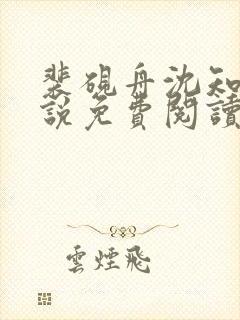 裴硯舟沈知
說免費閱讀
雲煙飛